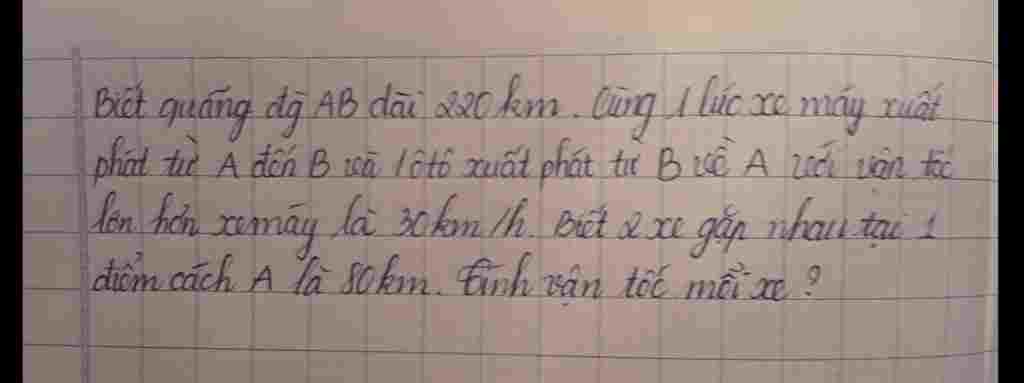 Biết quãng đg AB dài 220 km. Cùng 1 lúc xe máy xuất
phát từ A đến B và 1 ôtô xuất phát từ B về A với vận tốc
lớn hơn xe máy là 30km/h. Biết 2 xe gặp nhau tại 1
điểm cách A là 80km. Tính vận tốc mỗi xe?